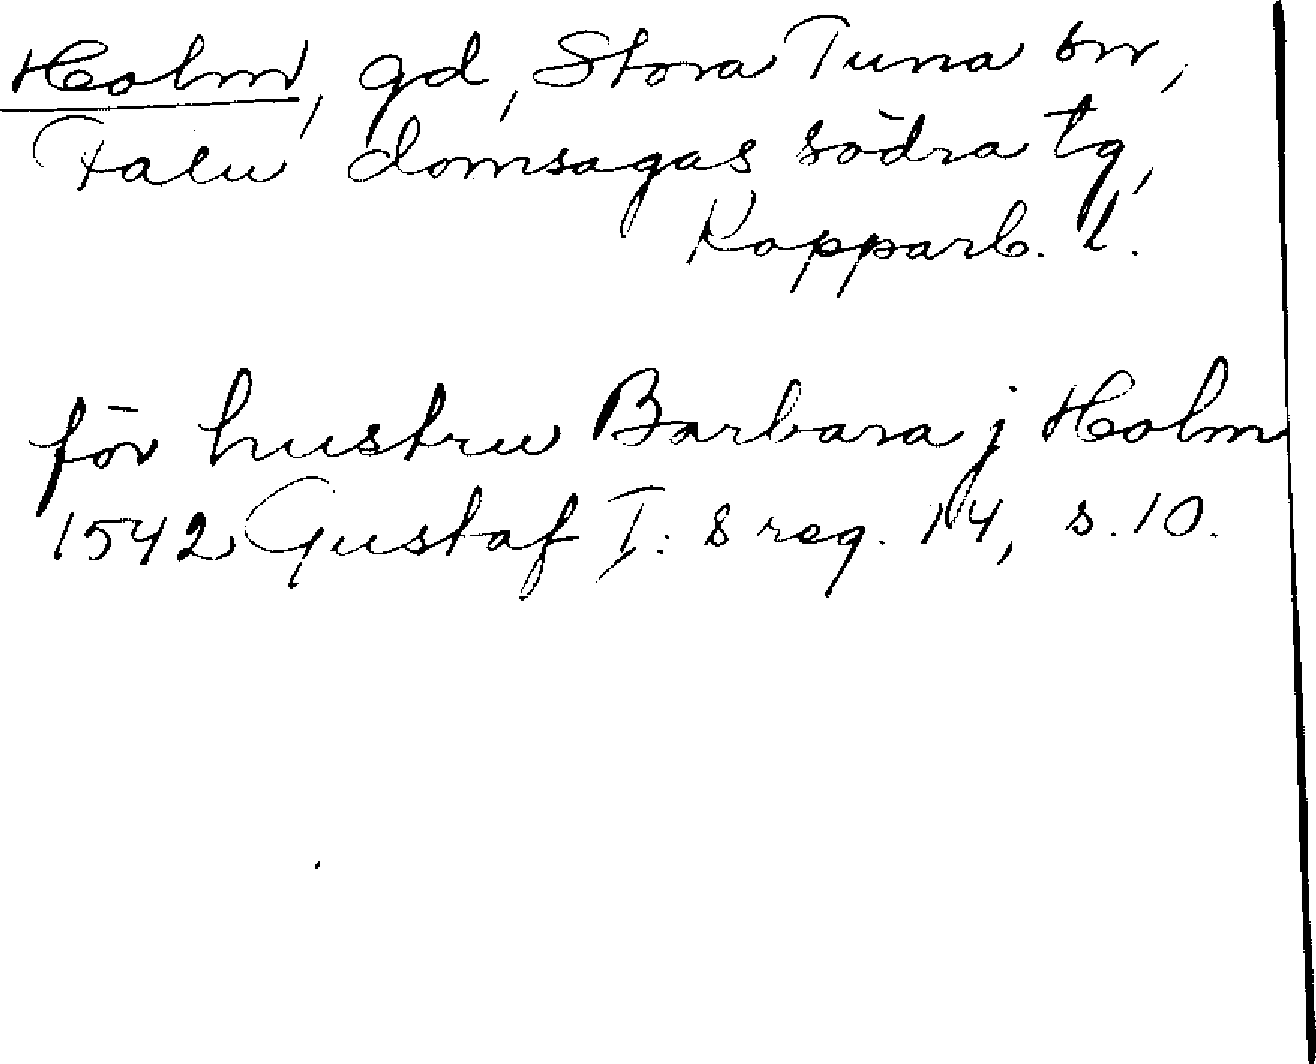 Holm, gd, Stora Tuna sn,
Falu domsagas södra tg,
Kopparb. l.
för hustru Barbara j Holm
1542 Gustaf I: s reg. 14, s. 10.